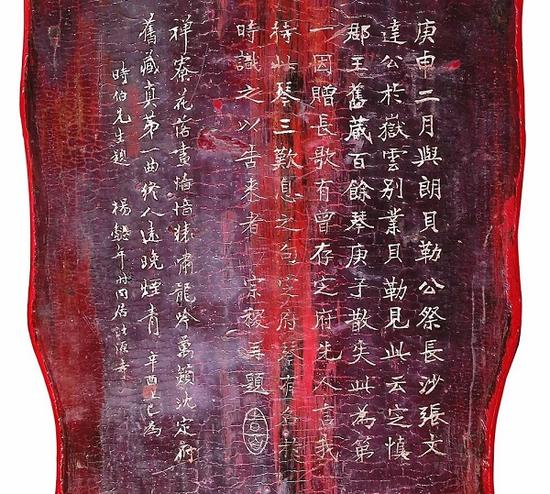 庚申二月與朗貝勒公祭長沙張文
達公於嶽雲別業貝勒見此云定慎
郡王舊藏百餘琴庚子散失此為第
一因贈長歌有曾存定府先人言我
待此琴三歎息之句定府琴有名於
時識之以告來者 宗稷再題
禪寮花落晝愔愔猿嘯龍吟萬籟沈定府
舊藏真第一曲終人遠晚煙青 辛酉上巳為
時伯先生題 楊懿年時同居法源寺